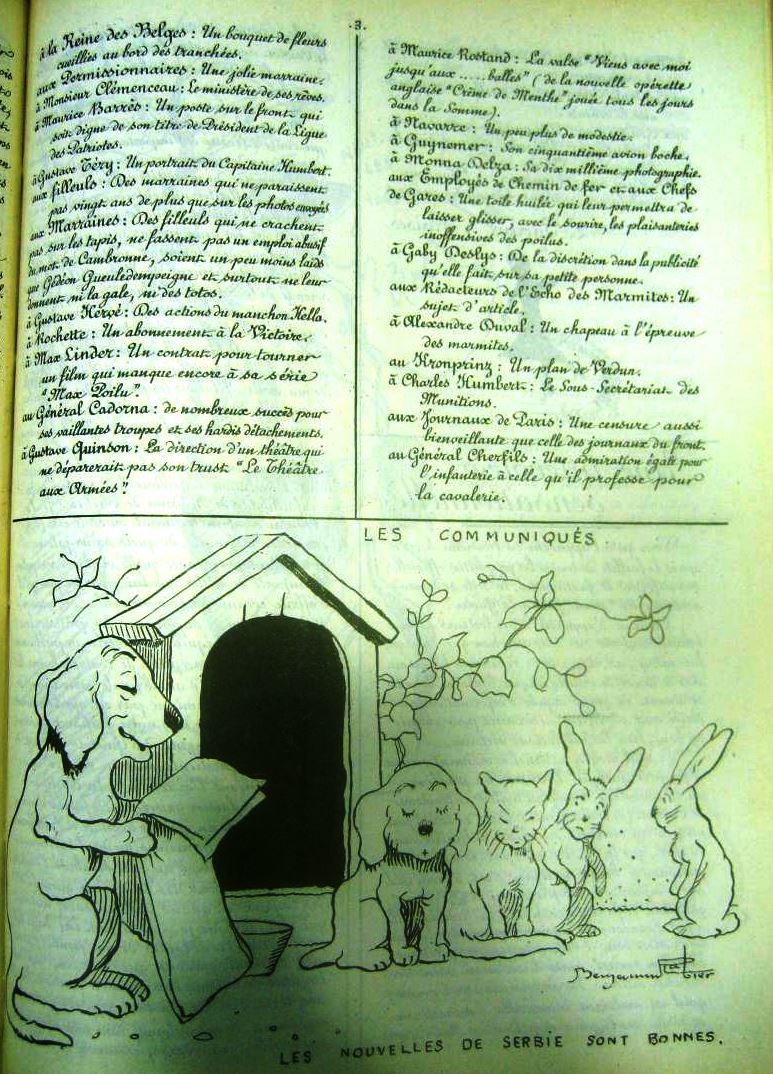 .3.
à la Reine des Belges : Un bouquet de fleurs
cueillies au bord des tranchées.
aux Permissionnaires : Une jolie marraine.
à Monsieur Clémenceau : Le ministère de ses rêves.
à Maurice Barrès : Un poste sur le front qui
soit digne de son titre de Président de la Ligue
des Patriotes.
à Gustave Téry : Un portrait du Capitaine Humbert.
aux filleuls : Des marraines qui ne paraissent
pas vingt ans de plus que sur les photos envoyées
aux Marraines : Des filleuls qui ne crachent
pas sur les tapis, ne fassent pas un emploi abusif
du mot de Cambronne, soient un peu moins laids
que Gédéon Gueuledempeigne et surtout ne leur
donnent ni la gale, ni des totos.
à Gustave Hervé : Des actions du manchon Hella.
à Rochette : Un abonnement à la Victoire.
à Max Linder : Un contrat pour tourner
un film qui manque encore à sa série
"Max Poilu".
au Général Cadorna : de nombreux succès pour
ses vaillantes troupes et ses hardis détachements.
à Gustave Quinson : La direction d'un théâtre qui
ne déparerait pas son trust "Le Théâtre
aux Armées !
à Maurice Rostand : La valse "Viens avec moi
jusqu'aux ..... balles" (de la nouvelle opérette
anglaise "Crème de Menthe" jouée tous les jours
dans la Somme).
à Navarre : Un peu plus de modestie.
à Guynemer : Son cinquantième avion boche.
à Monna Delza : Sa dix millième photographie.
aux Employés de Chemin de fer et aux Chefs
de Gares : Une toile huilée qui leur permettra de
laisser glisser, avec le sourire, les plaisanteries
inoffensives des poilus.
à Gaby Deslys : De la discrétion dans la publicité
qu'elle fait sur sa petite personne.
aux Rédacteurs de l'Echo des Marmites : Un
sujet d'article.
à Alexandre Duval : Un chapeau à l'épreuve
des marmites.
au Kronprinz : Un plan de Verdun.
à Charles Humbert : Le Sous-Secrétariat des
Munitions.
aux Journaux de Paris : Une censure aussi
bienveillante que celle des journaux du front.
au Général Cherfils : Une admiration égale pour
l'infanterie à celle qu'il professe pour
la cavalerie.
LES COMMUNIQUÉS.
Benjamin Rabier
LES NOUVELLES DE SERBIE SONT BONNES.